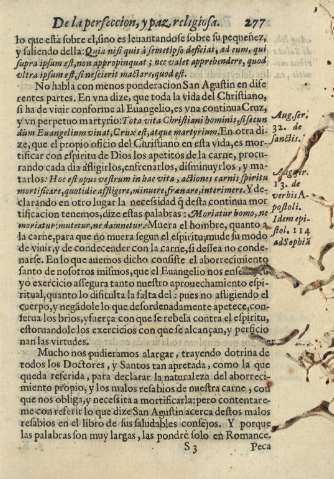 De la perfeccion, y paz religiosa. 277
lo que está sobre el, sino es leuantandose sobre su pequeñez,
y saliendo della: Quia nisi quis à semetipso deficiat, ad eum, qui
supra ipsum est, non appropinquat; nec valet apprehendere, quod
vltra ipsum est, si nescierit mactare, quod est.
No habla con menos ponderacion San Agustin en dife
rentes partes. En vna dize, que toda la vida del Christiano,
si ha de viuir conforme al Euangelio, es vna continua Cruz,
y vn perpetuo martyrio: Tota vita Christiani hominis, si secun
dùm Euangelium viuat, Crux est, atque martyrium. En otra di
ze, que el propio oficio del Christiano en esta vida, es mor
tificar con espiritu de Dios los apetitos de la carne, procu
rando cada dia afligirlos, enfrenarlos, disminuyrlos, y ma-
tarlos: Hoc est opus vestrum in hac vita, actiones carnis spiritu
mortificare, quotidie affligere, minuere, frænare, interimere. Y de
clarando en otro lugar la necessidad q̃ desta continua mor
tificacion tenemos, dize estas palabras: Moriatur homo, ne
moriatur; mutetur, ne damnetur. Muera el hombre, quanto a
la carne, para que no muera segun el espiritu; mude su modo
de viuir, y de condecender con la carne, si dessea no conde-
narse. En lo que auemos dicho consiste el aborrecimiento
santo de nosotros mismos, que el Euangelio nos enseña, cu
yo exercicio assegura tanto nuestro aprouechamiento espi-
ritual, quanto lo dificulta la falta del: pues no afligiendo el
cuerpo, y negádole lo que desordenadamente apetece, con-
serua los brios, y fuerça con que se rebela contra el espiritu,
estoruandole los exercicios con que se alcançan, y perficio
nan las virtudes.
Mucho nos pudieramos alargar, trayendo dotrina de
todos los Doctores, y Santos tan apretada, como la que
queda referida, para declarar la naturaleza del aborreci-
miento propio, y los malos resabios de nuestra carne, con
que nos obliga, y necessita a mortificarla: pero contentare-
me con referir lo que dize San Agustin acerca destos malos
resabios en el libro de sus saludables consejos. Y porque
las palabras son muy largas, las pondrè solo en Romance.
S 3 Peca
Aug. ser.
32. de
sanctis.
Aug. ser.
13. de
verbis A
postoli.
Idem epi
stol. 114
ad Sophiã